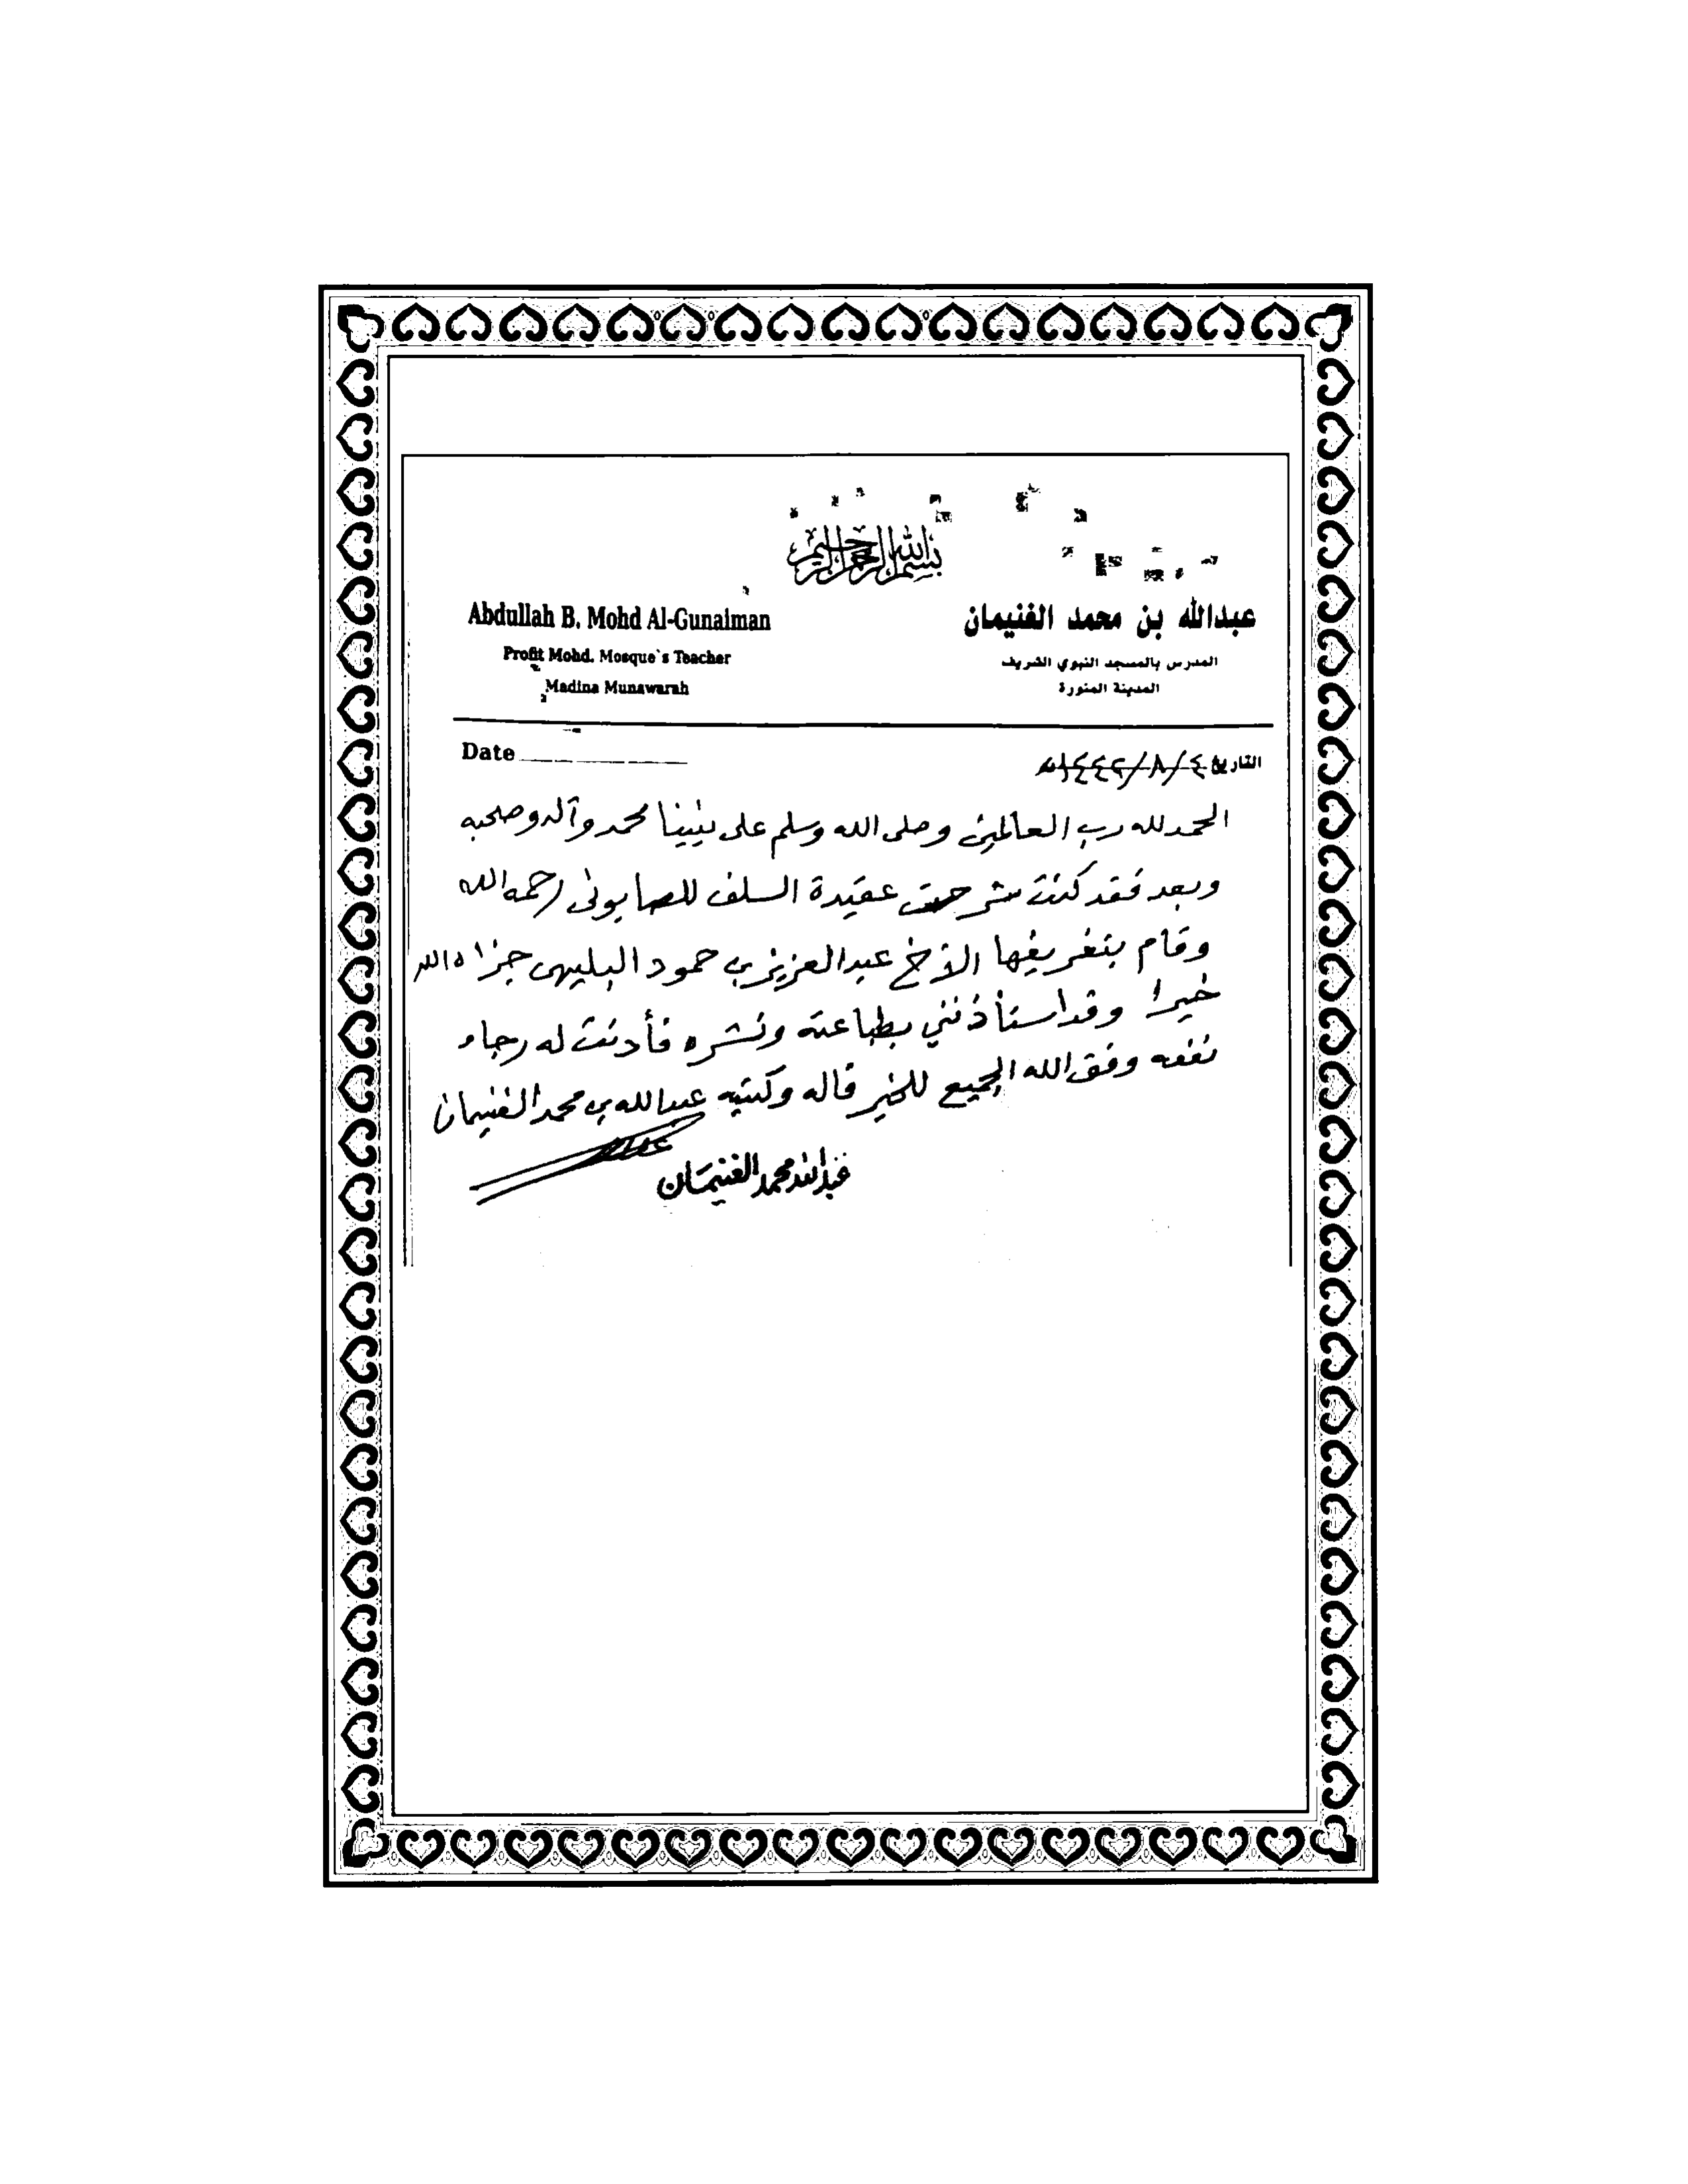 بسم الله الرحمن الرحيم
عبدالله بن محمد الغنيمان
المدرس بالمسجد النبوي الشريف
المدينة المنورة
Abdullah B. Mohd Al-Gunaiman
Profit Mohd. Mosque`s Teacher
Madina Munawarah
التاريخ ٤/٨/١٤٤٢هـ
Date
الحمد لله رب العالمين وصلى الله وسلم على نبينا محمد وآله وصحبه
وبعد فقد كنت شرحت عقيدة السلف للصابوني رحمه الله
وقام بتفريغها الأخ عبدالعزيز بن حمود البليهي جزاه الله
خيرا وقد استأذنني بطباعته ونشره فأذنت له رجاء
نفعه وفق الله الجميع للخير قاله وكتبه عبدالله بن محمد الغنيمان
عبدالله محمد الغنيمان